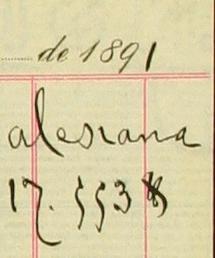 de 1891
alesiana
17.553$